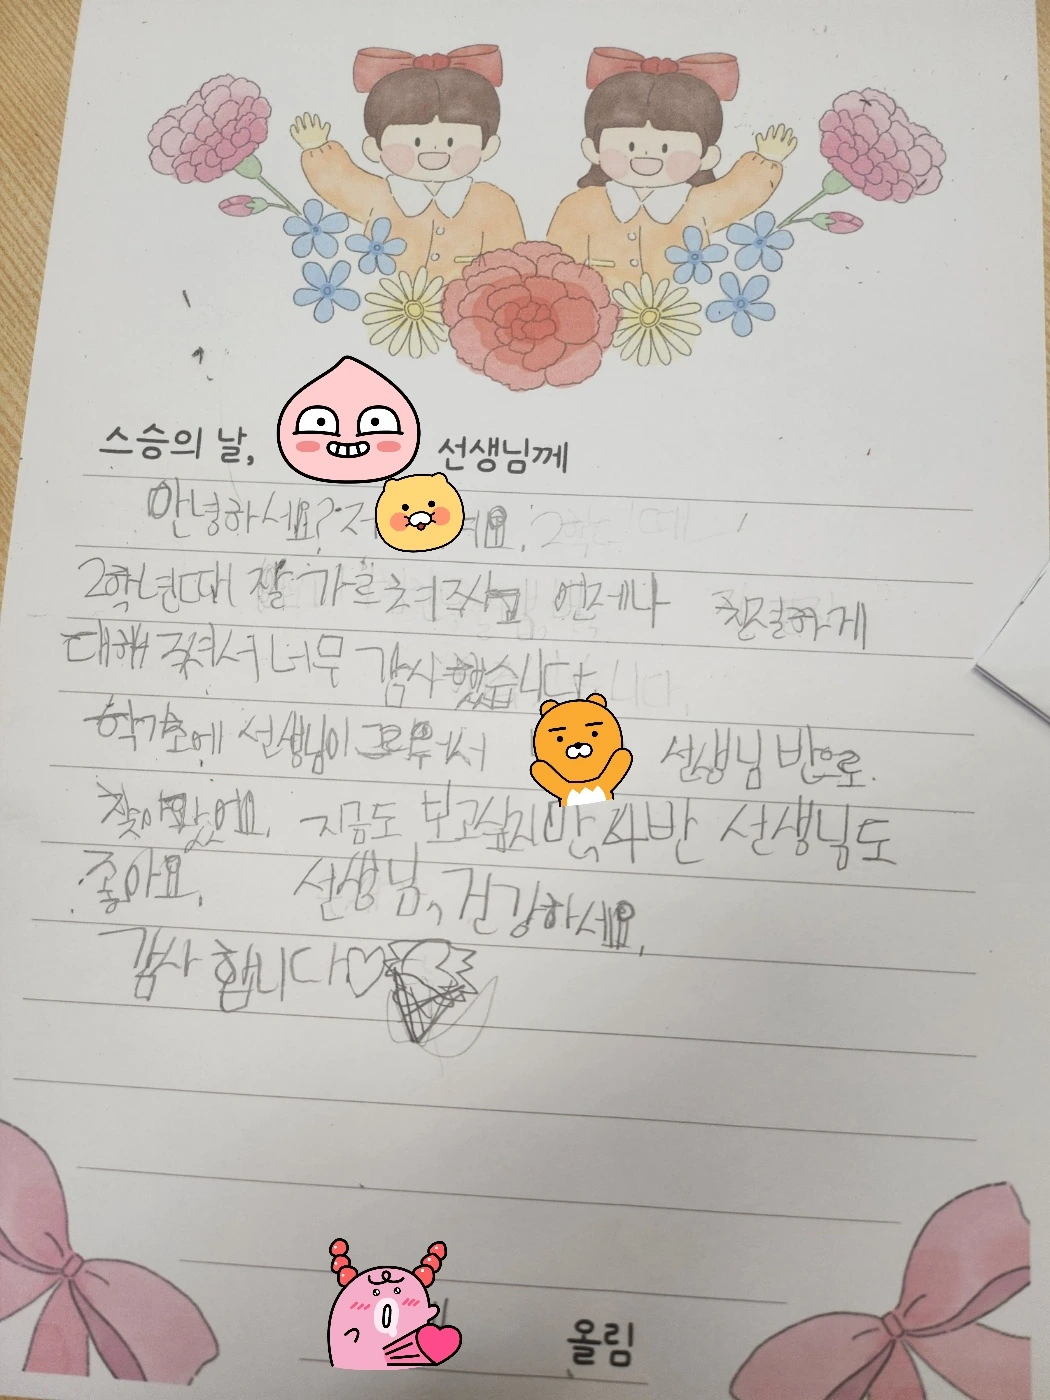 스승의 날, 선생님께
안녕하세요? 저 예요. 2학년때
2학년때 잘 가르쳐주시고 언제나 친절하게
대해 주셔서 너무 감사했습니다
학기초에 선생님이 그리워서 선생님 반으로
찾아갔었어요. 지금도 보고싶지만, 4반 선생님도
좋아요. 선생님, 건강하세요.
감사합니다♡
올림